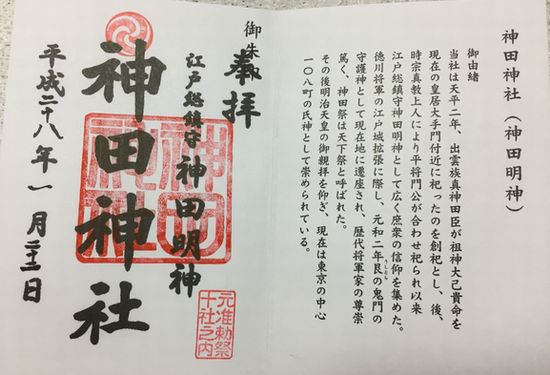 神田神社（神田明神）
御由緒
当社は天平二年、出雲族真神田臣が祖神大己貴命を
現在の皇居大手門付近に祀ったのを創祀とし、後、
時宗真教上人により平将門公が合わせ祀られ以来
江戸総鎮守神田明神として広く庶衆の信仰を集めた。
徳川将軍の江戸城拡張に際し、元和二年艮の鬼門の
うしとら
守護神として現在地に遷座され、歴代将軍家の尊崇
篤く、神田祭は天下祭と呼ばれた。
その後明治天皇の御親拝を仰ぎ、現在は東京の中心
一〇八町の氏神として崇められている。
御朱印
奉拝
江戸総鎮守 神田明神
元准勅祭
十社之内
神田神社
平成二十八年 一月